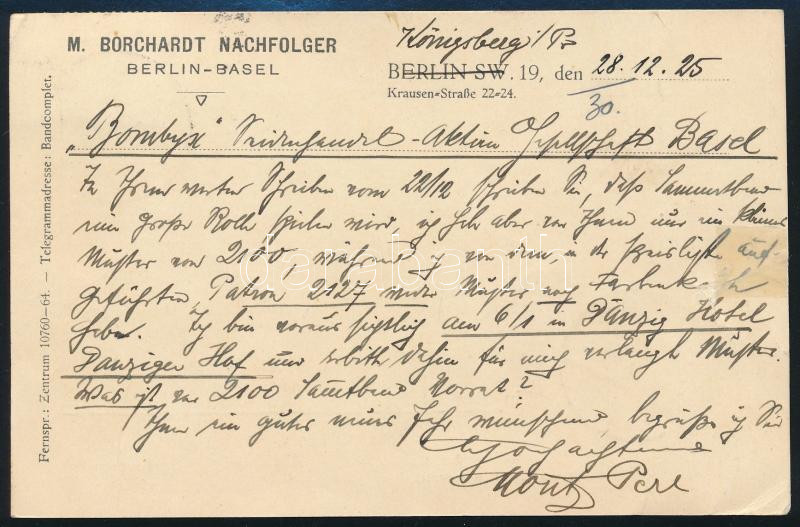 M. BORCHARDT NACHFOLGER
BERLIN-BASEL
Königsberg i/Pr
BERLIN SW. 19, den 28.12.25
Krausen=Straße 22=24.
30.
Fernspr.: Zentrum 10760—64. — Telegrammadresse: Bandcomplet.
„Bombyx" Seidenhandel-Aktien Gesellschaft Basel
In Ihrem werten Schreiben vom 22/12 schreiben Sie, daß Sammetband
eine große Rolle spielen wird, ich habe aber von Ihnen nur ein kleines
Muster von 2100, während ich von dem, in der Preisliste auf-
geführten, Patron 2127 weder Muster noch Farbenkarte
habe. Ich bin voraussichtlich am 6/1 in Danzig Hotel
Danziger Hof und erbitte dahin für mich verlangte Muster.
Was ist von 2100 Samtband Vorrat?
Ihnen ein gutes neues Jahr wünschend begrüße ich Sie
Hochachtend
Moritz Perl
darabanth